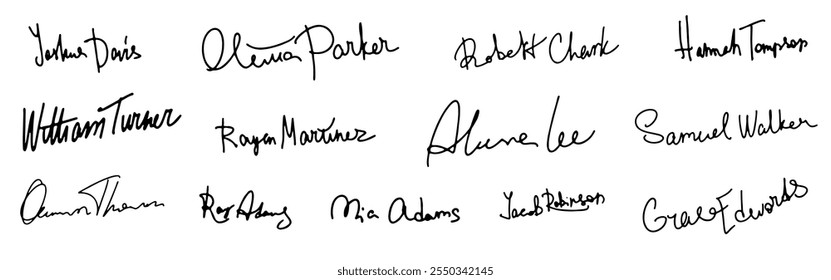 Joshua Davis Olivia Parker Robert Chark Hannah Tompson
William Turner Rayan Martinez Lee Samuel Walker
Ray Adams Mia Adams Jacob Robinson
Grace Edwards
shutterstock.com · 2550342145